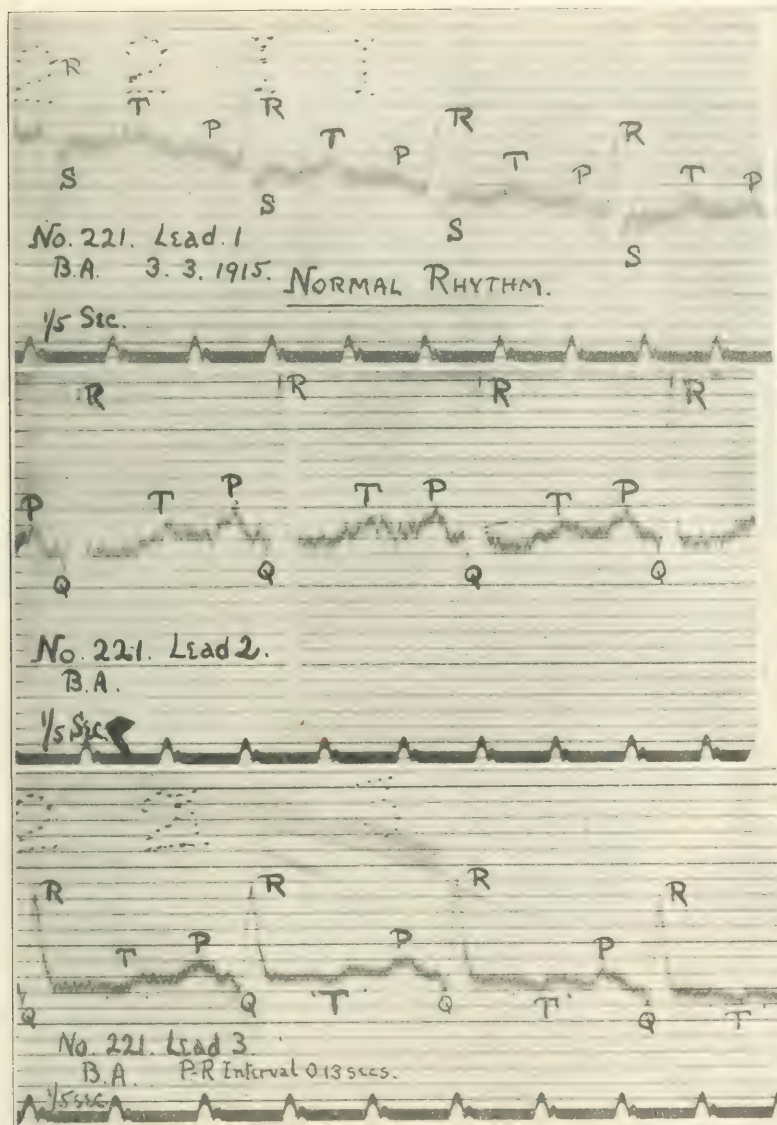 2 2 1 1
R
T R R R
P T P T P T P
S S S S
No. 221. Lead. 1
B.A. 3. 3. 1915. NORMAL RHYTHM.
1/5 Sec.
R R R R
P T P T P T P
Q Q Q Q
No. 221. Lead 2.
B.A.
1/5 Sec.
2 2 1
R R R R
T P P P
Q Q Q Q
'T' T' T'
No. 221. Lead 3.
B.A. P-R Interval 0.13 secs.
1/5 sec